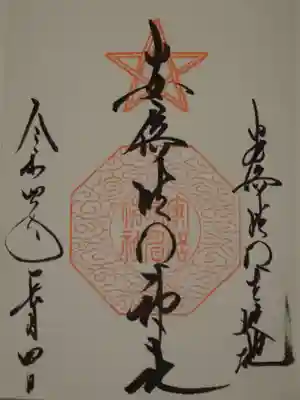 安倍晴明生誕地
安倍晴明神社
令和四年 長月四日